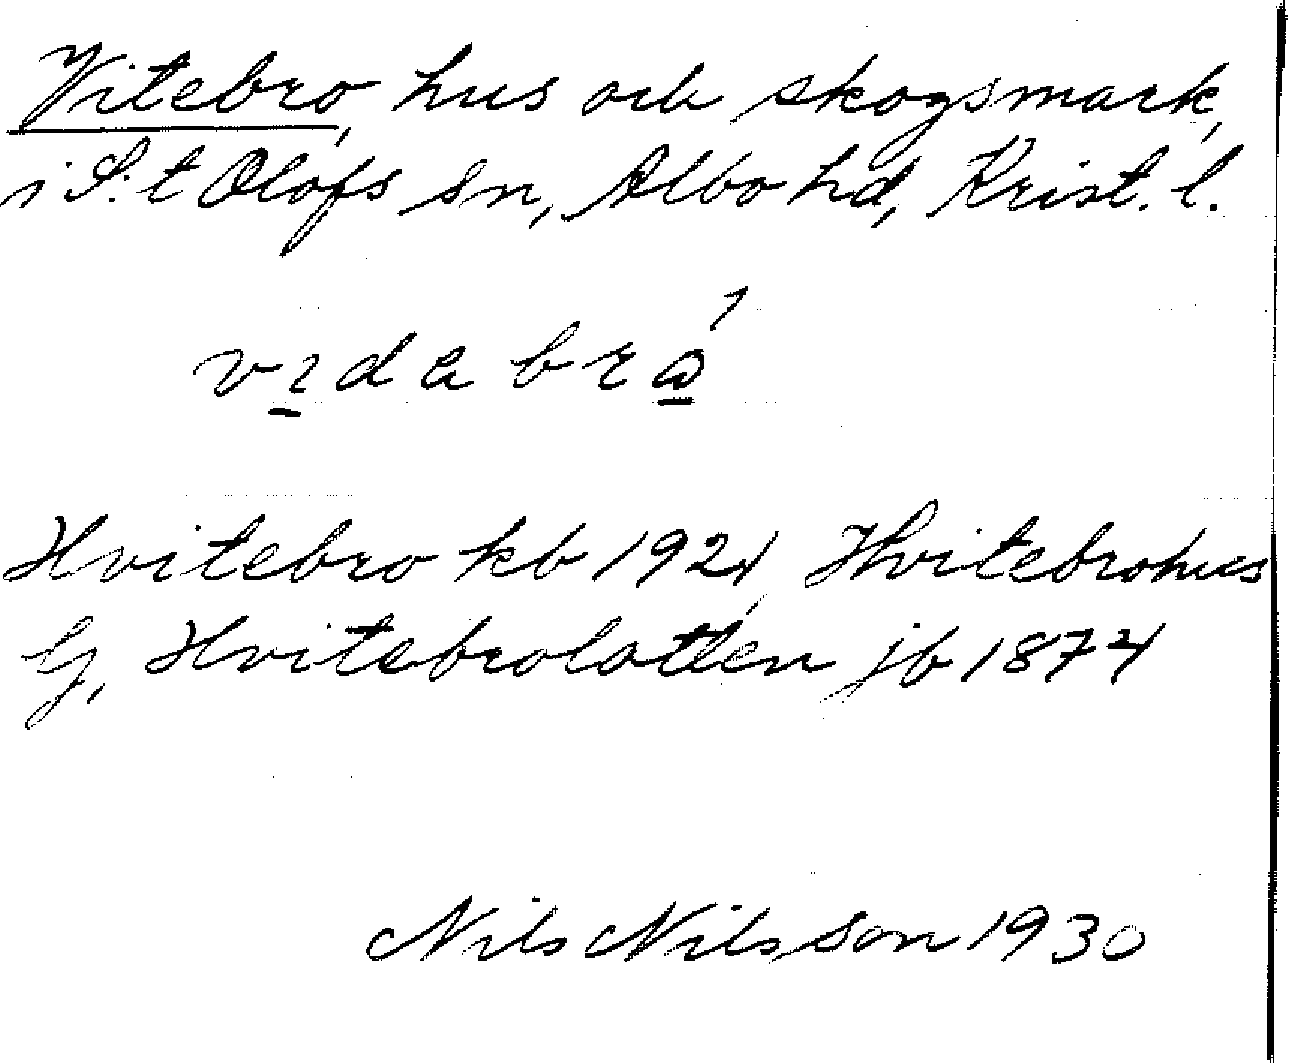 Vitebro, hus och skogsmark,
i S:t Olofs sn, Albo hd, Krist. l.
vıdabrώ
Hvitebro kb 1924, Hvitebrohus
G, Hvitebrolotten jb 1874
Nils Nilsson 1930